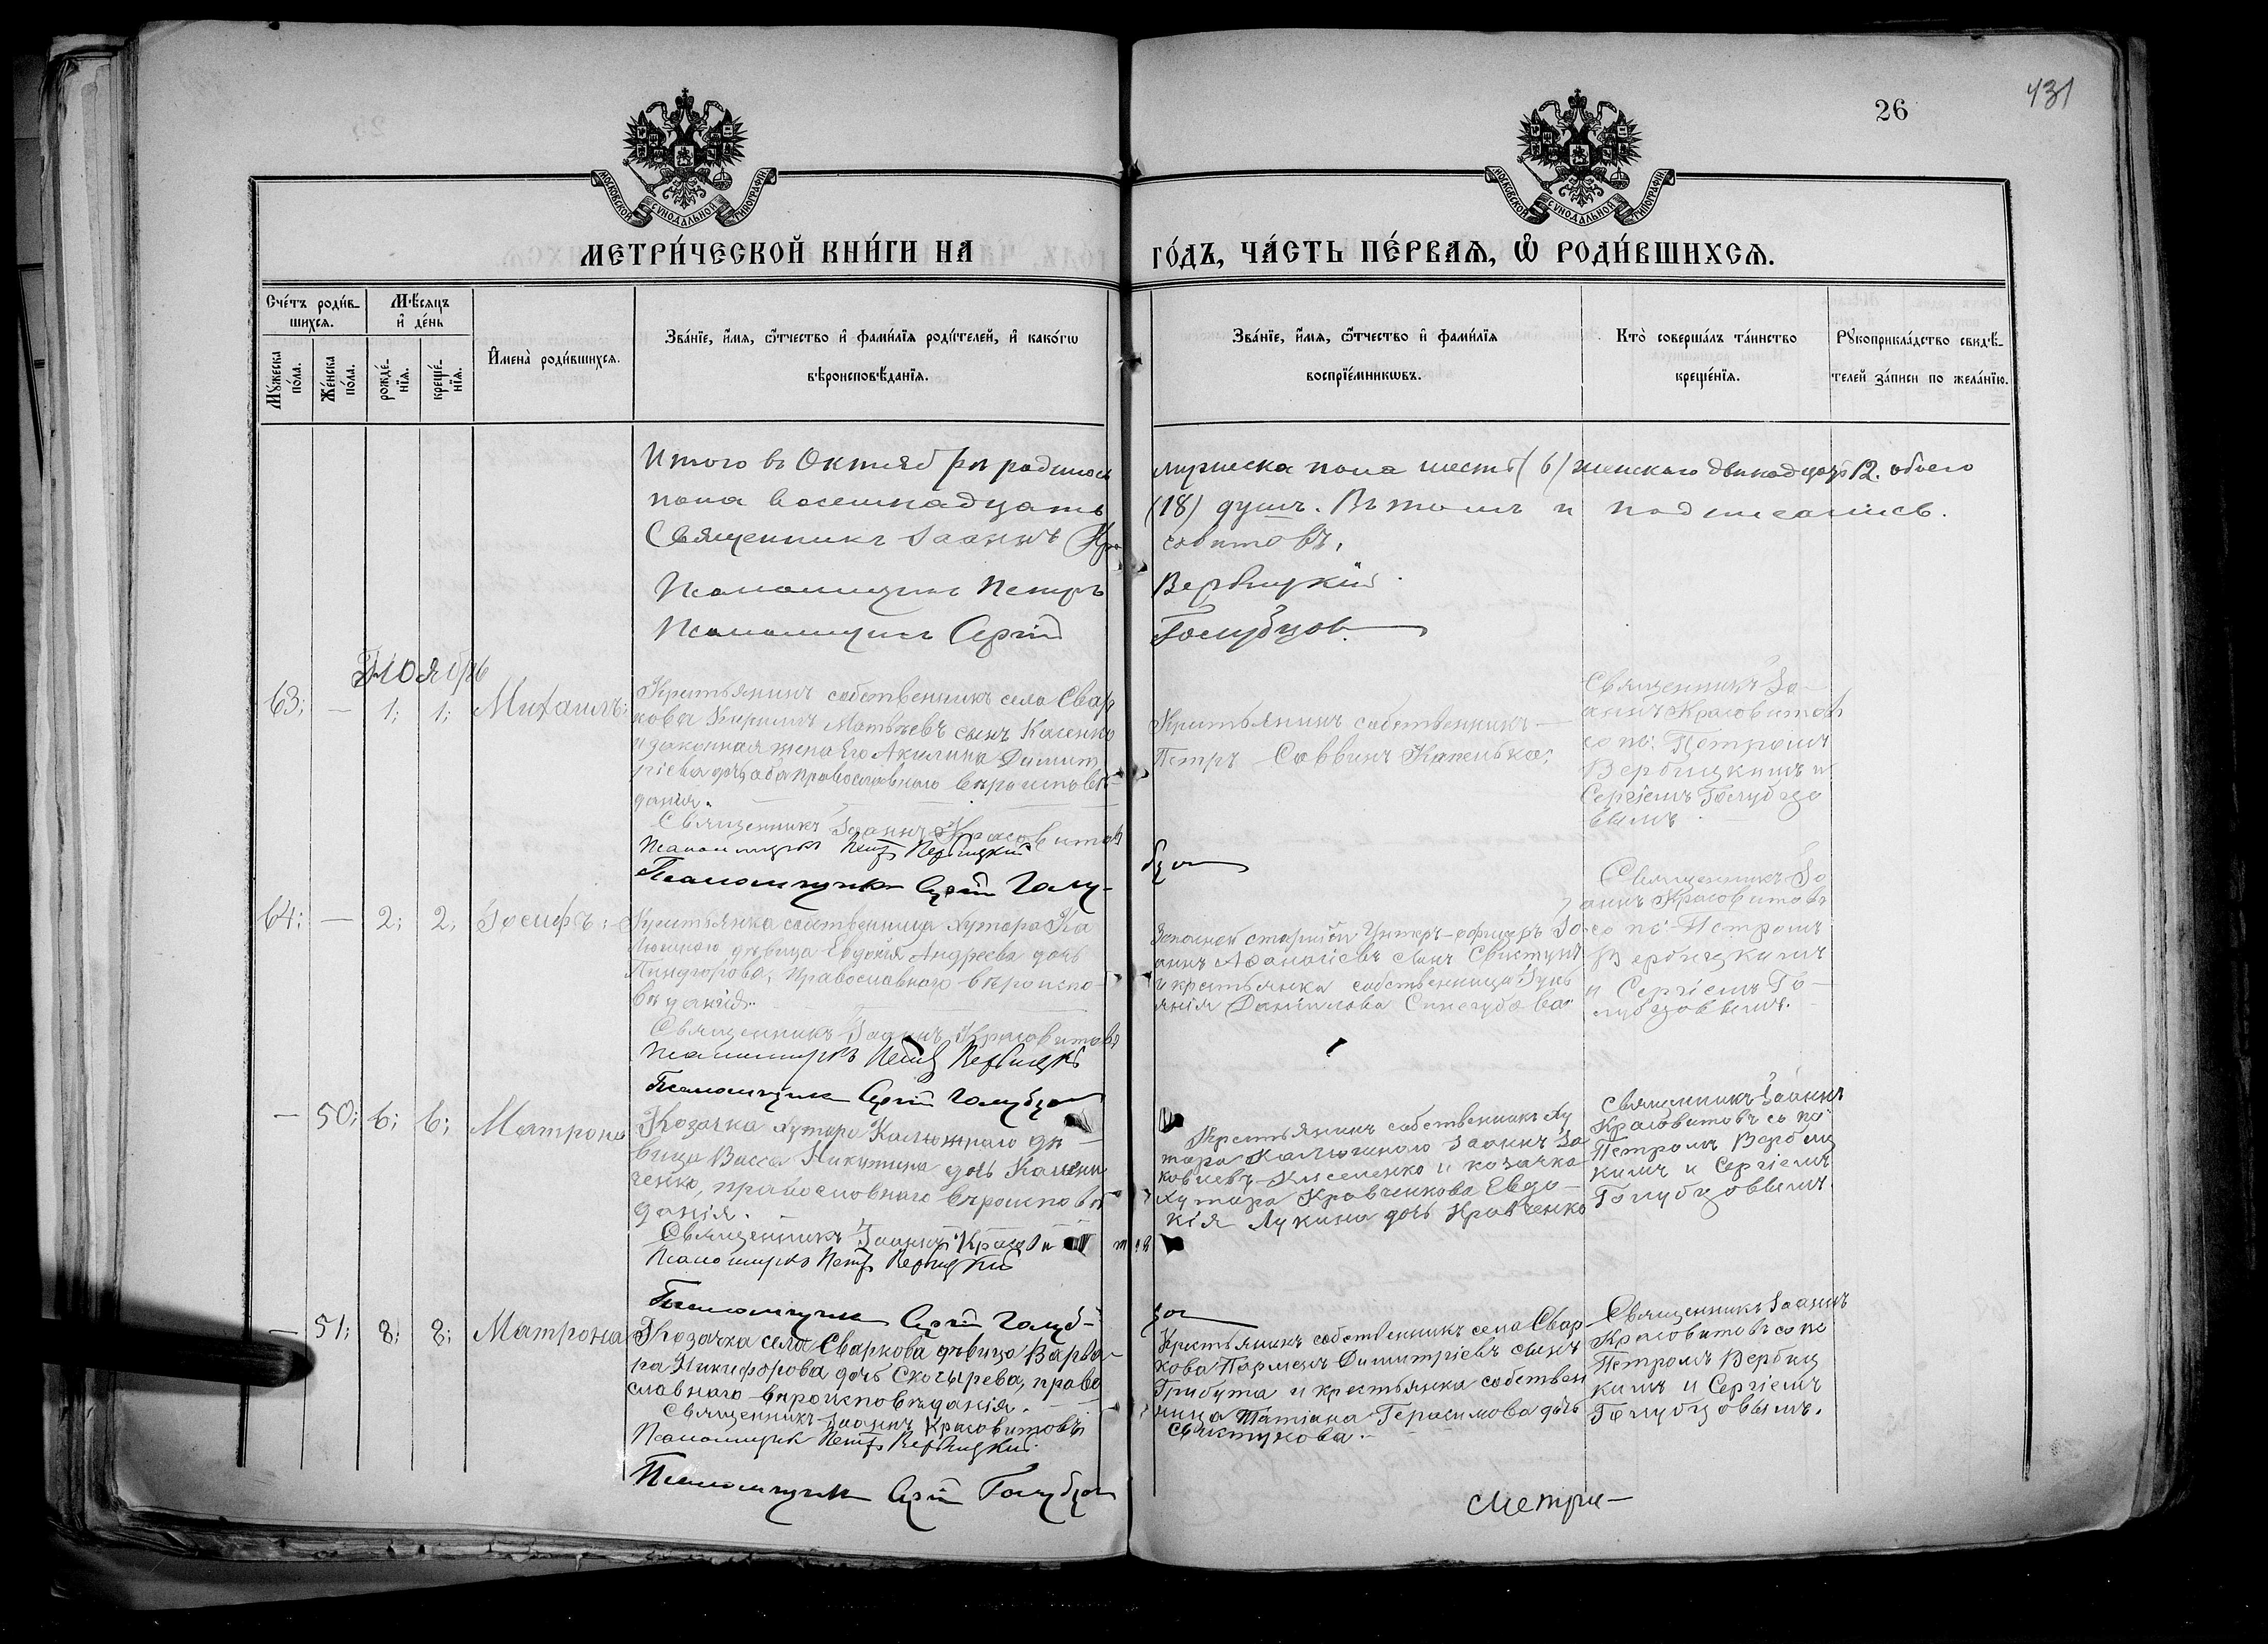 431
26
МОСКОВСКОЙ СѴНОДАЛЬНОЙ ТИПОГРАФІИ
МОСКОВСКОЙ СѴНОДАЛЬНОЙ ТИПОГРАФІИ
МЕТРИ́ЧЕСКОЙ КНИ́ГИ НА
ГО́ДЪ, ЧА́СТЬ ПЕ́РВАѦ, Ѡ҆ РОДИ́ВШИХСѦ.
Сче́тъ роди́в-
шихсѧ.
Мꙋ́жеска по́ла.
Же́нска по́ла.
Мѣ́сѧцъ
и҆ де́нь
рожде́-
нїѧ.
креще́-
нїѧ.
И҆мена̀ роди́вшихсѧ.
Зва́нїе, и҆́мѧ, ѻ҆́тчество и҆ фами́лїѧ роди́телей, и҆ како́гѡ
вѣроисповѣ́данїѧ.
Зва́нїе, и҆́мѧ, ѻ҆́тчество и҆ фами́лїѧ
воспрїе́мникѡвъ.
Кто̀ соверша́лъ та́инство
креще́нїѧ.
Рꙋкоприкла́дство свидѣ́-
телей за́писи по жела́нїю.
Итого въ Октябрѣ родилось
мужеска пола шесть (6) женскаго двѣнадцать 12. обоего
пола восемнадцать
(18) душъ. Въ томъ и подписались.
Священникъ Іоаннъ Кра
совитовъ,
Псаломщикъ Петръ
Вербицкій
Псаломщикъ Сергій
Голубцов.
Ноябрь
63; — 1; 1; Михаилъ;
Крестьянинъ собственникъ села Свар
кова Кирилъ Матѳеевъ сынъ
и законная жена его Акилина Димит
ріева дочь оба православнаго вѣроисповѣ-
данія.
Священникъ Іоаннъ Красовитовъ
Псаломщикъ Петръ Вербицкий
Псаломщикъ Сергій Голу-
Крестьянинъ собственникъ —
Петръ Саввинъ Капелька;
бцов
Священникъ Іо-
аннъ Красовитовъ
со пс: Петромъ
Вербицкимъ и
Сергіемъ Голубцо
вымъ.
64; — 2; 2; Іосифъ;
Крестьянка собственница хутора Ка
люжнаго дѣвица Евдокія Андреева дочь
православнаго вѣроиспо-
вѣданія.
Священникъ Іоаннъ Красовитовъ
Псаломщикъ Петръ Вербицкій
Псаломщикъ Сергій Голубцов
Запасной старшій Унтеръ-офицеръ Іо-
аннъ Аѳанасіевъ сынъ Свистунъ
и крестьянка собственница
Даниилова
Священникъ Іо
аннъ Красовитовъ
со пс: Петромъ
Вербицкимъ
и Сергіемъ Го-
лубцовымъ.
— 50; 6; 6; Матрона
Козачка хутора Калюжнаго дѣ-
вица Васса Никитина дочь
православнаго вѣроисповѣ
данія.
Священникъ Іоаннъ Красови товъ
Псаломщикъ Петръ Вербицкій
Псаломщикъ Сергій Голуб-
Крестьянинъ собственникъ ху
тора Калюжнаго Іоаннъ Іа
ковлевъ Киселенко и козачка
хутора Кравченкова Евдо-
кія Лукина дочь Кравченко
цов
Священникъ Іоаннъ
Красовитовъ со пс:
Петромъ Вербиц
кимъ и Сергіемъ
Голубцовымъ.
— 51; 8; 8; Матрона
Козачка села Сваркова дѣвица Варва-
ра Никифорова дочь Скочырева, право
славнаго вѣроисповѣданія.
Священникъ Іоаннъ Красовитовъ
Псаломщикъ Петръ Вербицкій.
Псаломщикъ Сергій Голубцов
Крестьянинъ собственникъ села Свар
кова Парменъ Димитріевъ сынъ
Грибута и крестьянка собствен
ница Татіана Герасимова дочь
Свистунова.
Священникъ Іоаннъ
Красовитовъ со пс
Петромъ Вербиц
кимъ и Сергіемъ
Голубцовымъ.
Метри-